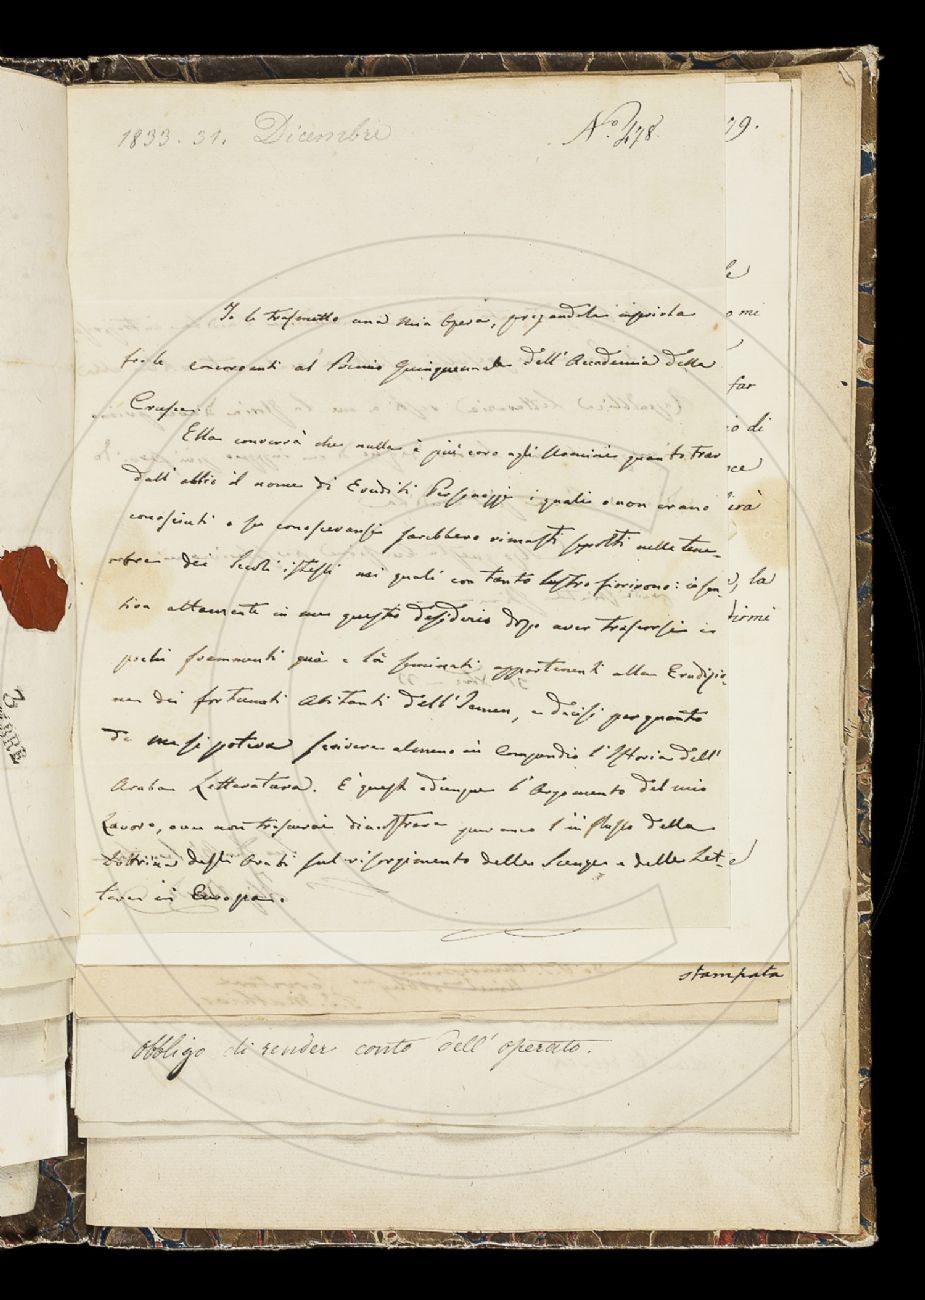 1833. 31. Dicembre
N.° 478.
79.
Io le trasmetto una mia Opera, pregandola inserirla
fra le concorrenti al Premio Quinquennale dell'Accademia della
Crusca.
Ella converrà che nulla è più caro agli Uomini quanto trar
dall'oblio il nome di Eruditi Personaggi i quali o non erano
conosciuti o se conoscevansi sarebbero rimasti sepolti nelle tene-
bre dei Secoli istessi nei quali con tanto lustro fiorirono:
altamente in me questo desiderio dopo aver trascorsi i
pochi frammenti quà e là seminati appartenenti alla Erudizio-
ne dei fortunati Abitanti dell'Iemen, e decisi per quanto
da me si poteva scrivere almeno in Compendio l'Istoria dell'
Araba Letteratura. È questo adunque l'Argomento del mio
Lavoro, ove non trascurai dimostrare pur anco l'influsso della
Dottrina degli Arabi sul risorgimento delle Scienze e delle Let-
tere in Europa.
le
o mi
far
io di
nce
irà
, la
dirmi
stampata
obbligo di render conto dell'operato.
3
BRE